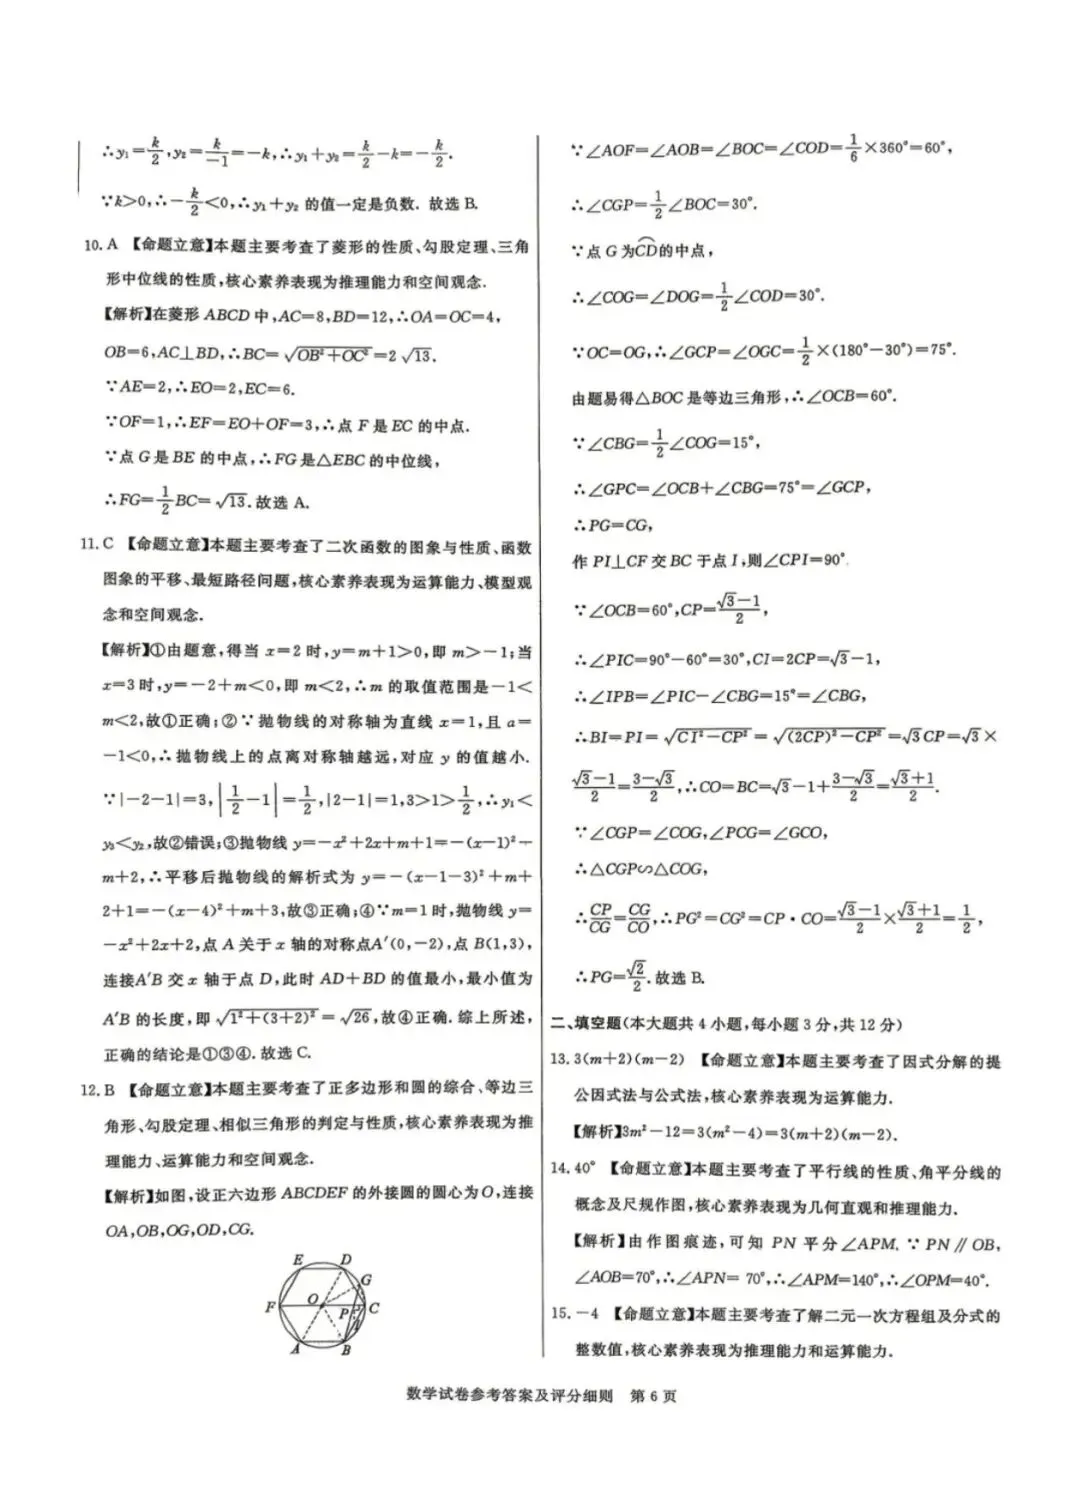 ∴y₁=k/2,y₂=k/-1=-k,∴y₁+y₂=k/2-k=-k/2.
∵k>0,∴-k/2<0,∴y₁+y₂ 的值一定是负数. 故选 B.
10. A 【命题立意】本题主要考查了菱形的性质、勾股定理、三角
形中位线的性质,核心素养表现为推理能力和空间观念.
【解析】在菱形 ABCD 中,AC=8,BD=12,∴OA=OC=4,
OB=6,AC⊥BD,∴BC=√(OB²+OC²)=2√13.
∵AE=2,∴EO=2,EC=6.
∵OF=1,∴EF=EO+OF=3,∴点 F 是 EC 的中点.
∵点 G 是 BE 的中点,∴FG 是△EBC 的中位线,
∴FG=1/2BC=√13.故选 A.
11. C 【命题立意】本题主要考查了二次函数的图象与性质、函数
图象的平移、最短路径问题,核心素养表现为运算能力、模型观
念和空间观念.
【解析】①由题意,得当 x=2 时,y=m+1>0,即 m>-1;当
x=3 时,y=-2+m<0,即 m<2,∴m 的取值范围是-1<
m<2,故①正确;②∵抛物线的对称轴为直线 x=1,且 a=
-1<0,∴抛物线上的点离对称轴越远,对应 y 的值越小.
∵|-2-1|=3,|1/2-1|=1/2,|2-1|=1,3>1>1/2,∴y₁<
y₃<y₂,故②错误;③抛物线 y=-x²+2x+m+1=-(x-1)²+
m+2,∴平移后抛物线的解析式为 y=-(x-1-3)²+m+
2+1=-(x-4)²+m+3,故③正确;④∵m=1 时,抛物线 y=
-x²+2x+2,点 A 关于 x 轴的对称点A′(0,-2),点 B(1,3),
连接A′B 交 x 轴于点 D,此时 AD+BD 的值最小,最小值为
A′B 的长度,即√(1²+(3+2)²)=√26,故④正确.综上所述,
正确的结论是①③④.故选 C.
12. B 【命题立意】本题主要考查了正多边形和圆的综合、等边三
角形、勾股定理、相似三角形的判定与性质,核心素养表现为推
理能力、运算能力和空间观念.
【解析】如图,设正六边形 ABCDEF 的外接圆的圆心为 O,连接
OA,OB,OG,OD,CG.
E D
G
F O P C
I
A B
∵∠AOF=∠AOB=∠BOC=∠COD=1/6×360°=60°,
∴∠CGP=1/2∠BOC=30°.
∵点 G 为CD的中点,
∴∠COG=∠DOG=1/2∠COD=30°.
∵OC=OG,∴∠GCP=∠OGC=1/2×(180°-30°)=75°.
由题易得△BOC 是等边三角形,∴∠OCB=60°.
∵∠CBG=1/2∠COG=15°,
∴∠GPC=∠OCB+∠CBG=75°=∠GCP,
∴PG=CG,
作 PI⊥CF 交 BC 于点 I,则∠CPI=90°.
∵∠OCB=60°,CP=(√3-1)/2,
∴∠PIC=90°-60°=30°,CI=2CP=√3-1,
∴∠IPB=∠PIC-∠CBG=15°=∠CBG,
∴BI=PI=√(CI²-CP²)=√((2CP)²-CP²)=√3CP=√3×
(√3-1)/2=(3-√3)/2,∴CO=BC=√3-1+(3-√3)/2=(√3+1)/2.
∵∠CGP=∠COG,∠PCG=∠GCO,
∴△CGP∽△COG,
∴CP/CG=CG/CO,∴PG²=CG²=CP·CO=(√3-1)/2×(√3+1)/2=1/2,
∴PG=√2/2.故选 B.
二、填空题(本大题共 4 小题,每小题 3 分,共 12 分)
13. 3(m+2)(m-2) 【命题立意】本题主要考查了因式分解的提
公因式法与公式法,核心素养表现为运算能力.
【解析】3m²-12=3(m²-4)=3(m+2)(m-2).
14. 40° 【命题立意】本题主要考查了平行线的性质、角平分线的
概念及尺规作图,核心素养表现为几何直观和推理能力.
【解析】由作图痕迹,可知 PN 平分∠APM. ∵PN∥OB,
∠AOB=70°,∴∠APN=70°,∴∠APM=140°,∴∠OPM=40°.
15. -4 【命题立意】本题主要考查了解二元一次方程组及分式的
整数值,核心素养表现为推理能力和运算能力.
数学试卷参考答案及评分细则 第 6 页